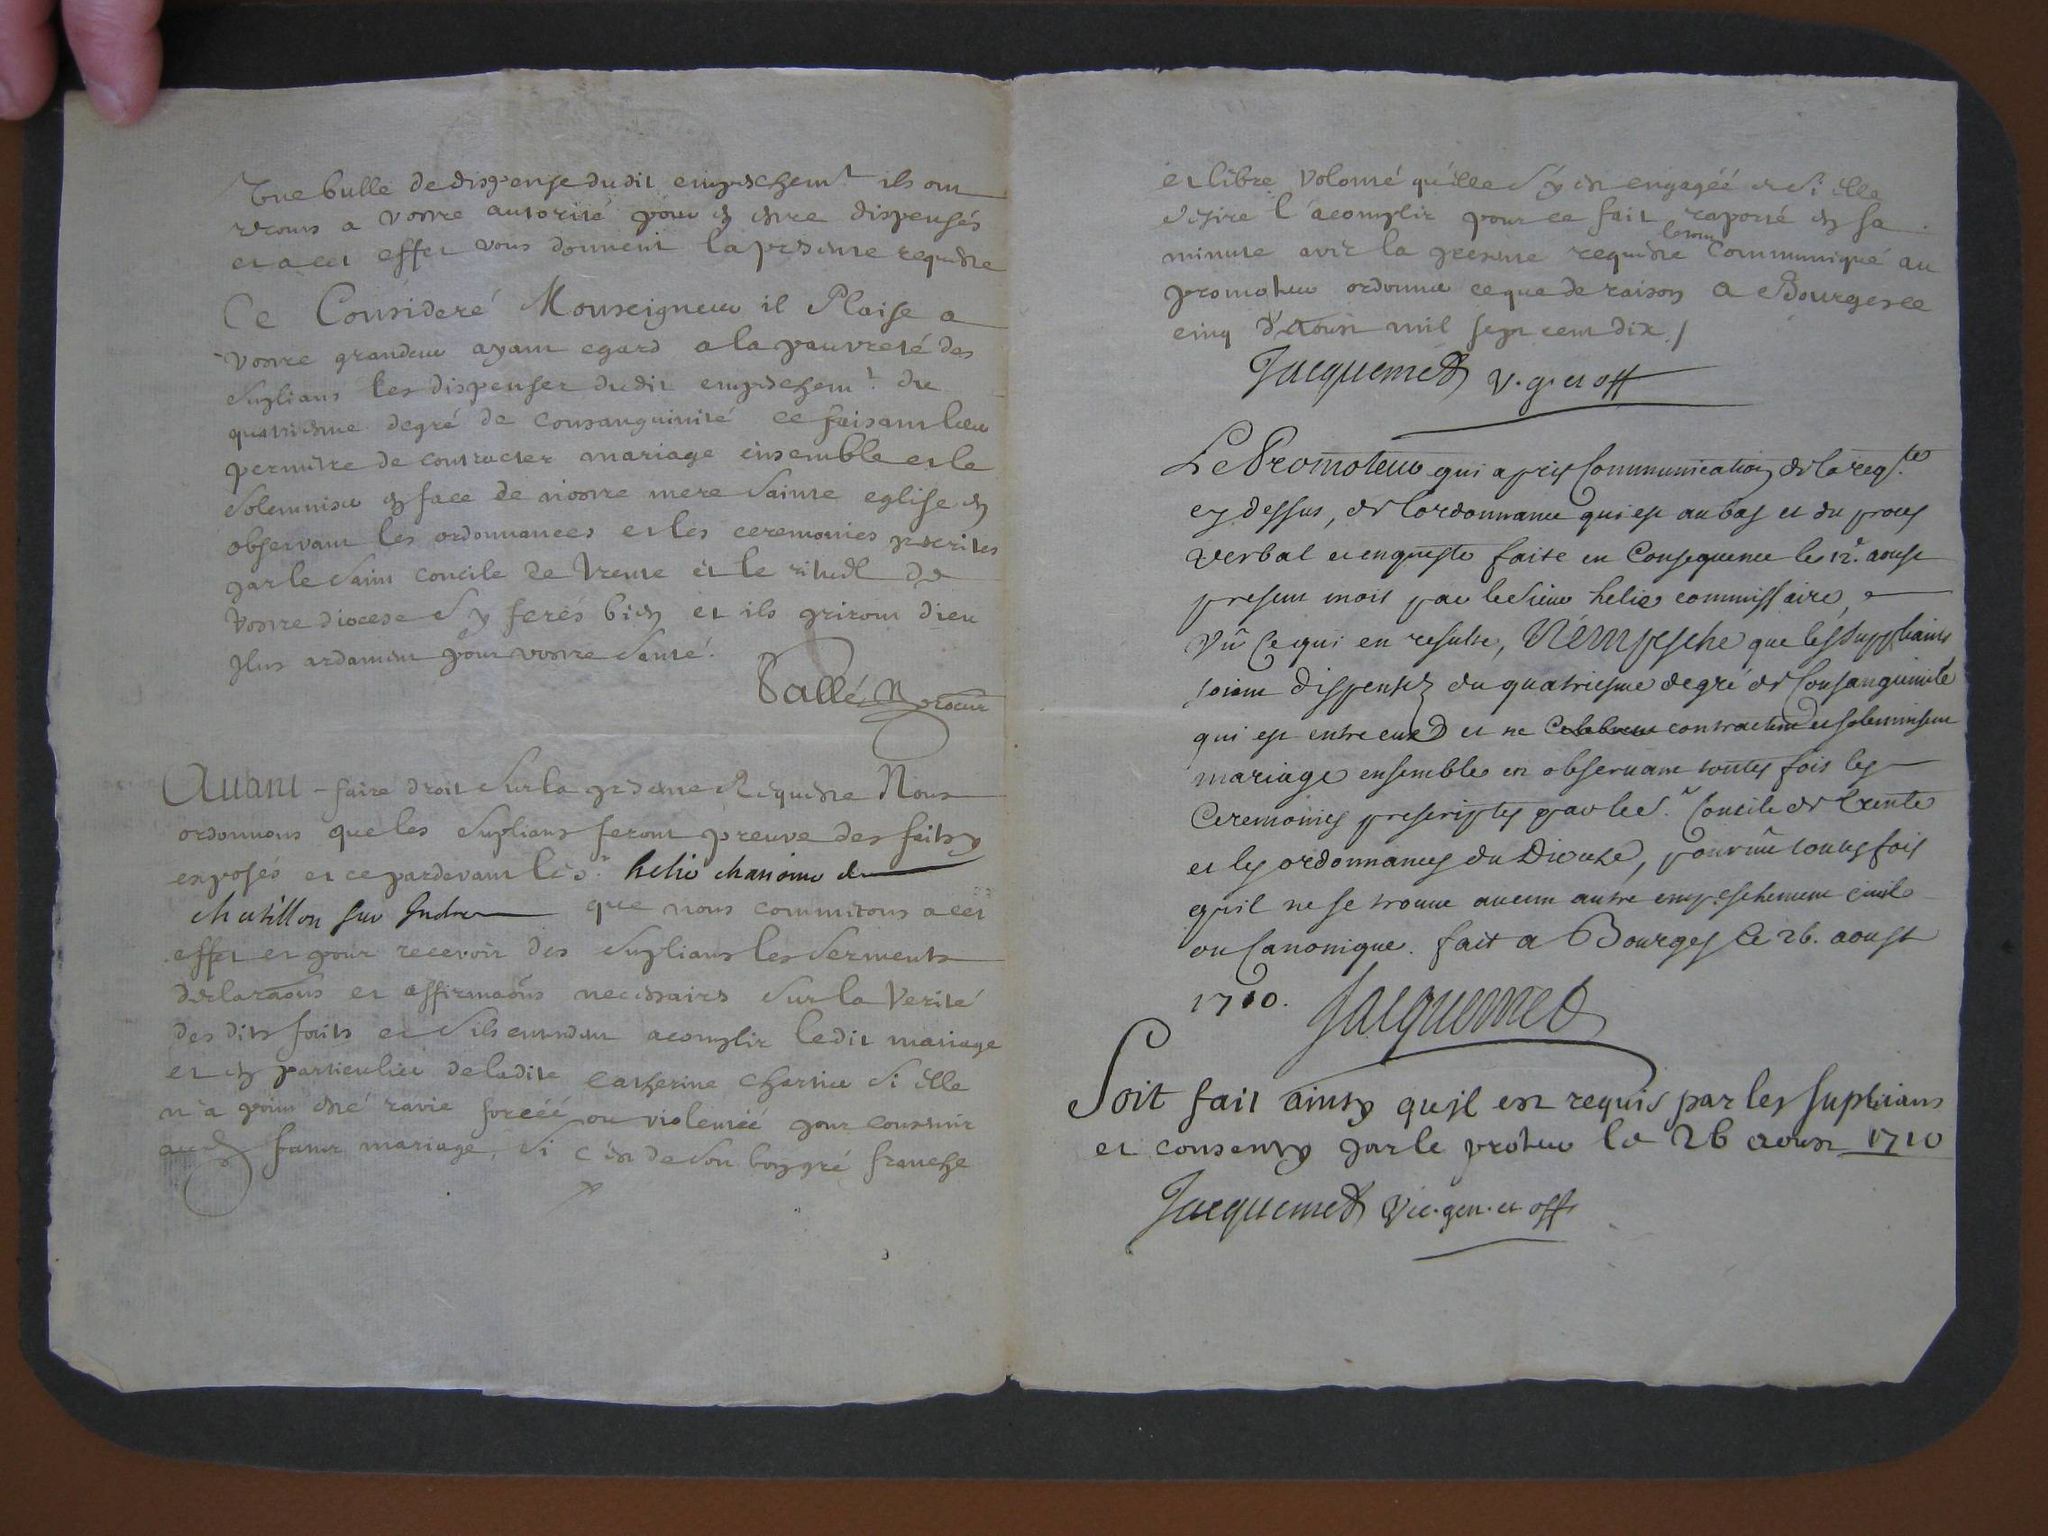 Une bulle de dispense dudit empeschem.t ils ont
recours a vostre autorité pour en estre dispensés
et a cet effet vous donnent la presente requeste
Ce Consideré Monseigneur il Plaise a
vostre grandeur ayant egard a la pauvreté des
suplians les dispenser dudit empeschem.t du
quatriesme degré de consanguinité ce faisant leur
permetre de contracter mariage ensemble et le
solemniser en face de nostre mere sainte eglise en
observant les ordonnances et les ceremonies prescrites
par le saint concile de trente et le rituel de
vostre diocese sy ferés bien et ils priront dieu
plus ardament pour vostre santé.
Pallé procur
Avant faire droit sur la presente Requeste Nous
ordonnons que les suplians feront preuve des faits y
exposés et ce pardevant le s.r helie chanoine de
chatillon sur Indre que nous commetons a cet
effet et pour recevoir des suplians les serments
declaraons et affirmaons necessaires sur la verité
des dits faits et sils entendent acomplir ledit mariage
et en particulier de ladite catherine chartier si elle
n'a point esté ravie forcéé ou violentéé pour consentir
aud futur mariage, si c'est de son bon gré franche
et libre volonté qu'elle s'y est engagéé et si elle
desire l'acomplir pour ce fait raporté en sa
minute avec la presente requeste le tout Communiqué au
promoteur ordonner ce que de raison a Bourges ce
cinq d'aoust mil sept cent dix /
Jacquemet v. g. et off
Le Promoteur qui a pris Communication de la req.te
cy dessus, de l'ordonnance qui est au bas et du proces
verbal et enqueste faite en Consequence le 12.e aoust
present mois par le sieur helie commissaire,
vû ce qui en resulte, N'empesche que les suppliants
soient dispensez du quatriesme degré de Consanguinité
qui est entre eux et ne contractent et solemnisent
mariage ensemble en observant toutes fois les
Ceremonies prescriptes par le S.t Concile de Trente
et les ordonnances du Diocese, pourvû toutes fois
qu'il ne se trouve aucun autre empeschement civil
ou Canonique. fait a Bourges le 26. aoust
1710. Jacquemet
Soit fait ainsy qu'il est requis par les supliants
et consenty par le proteur le 26 aoust 1710
Jacquemet vic. gen. et off